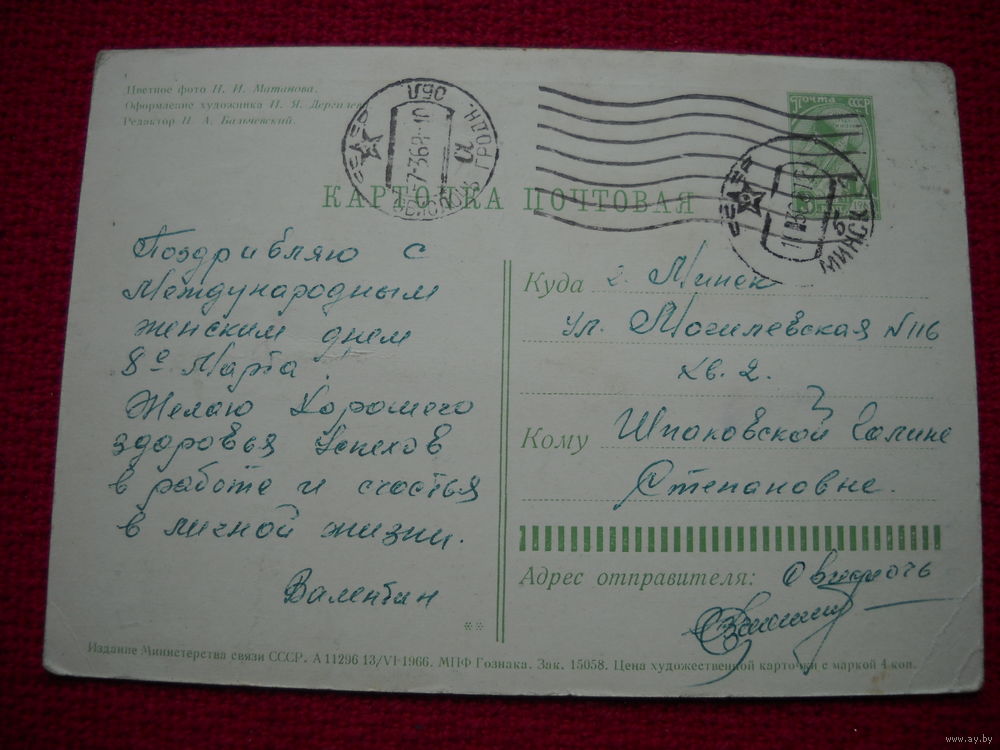 Цветное фото Н. И. Матанова.
Оформление художника И. Я. Дергилев
Редактор Н. А. Бальчевский.
КАРТОЧКА ПОЧТОВАЯ
Почта СССР
ГРОДН. ОБЛ
МИНСК
Поздрибляю с
Международным
женским днем
8е Марта.
Желаю Хорошего
здоровья Успехов
в работе и счастья
в личной жизни.
Валентин
Куда г. Минск
ул. Могилевская N 116
кв. 2.
Кому Шпаковской Галине
Степановне.
Адрес отправителя:
Издание Министерства связи СССР. А 11296 13/VI-1966. МПФ Гознака. Зак. 15058. Цена художественной карточки с маркой 4 коп.
www.ay.by